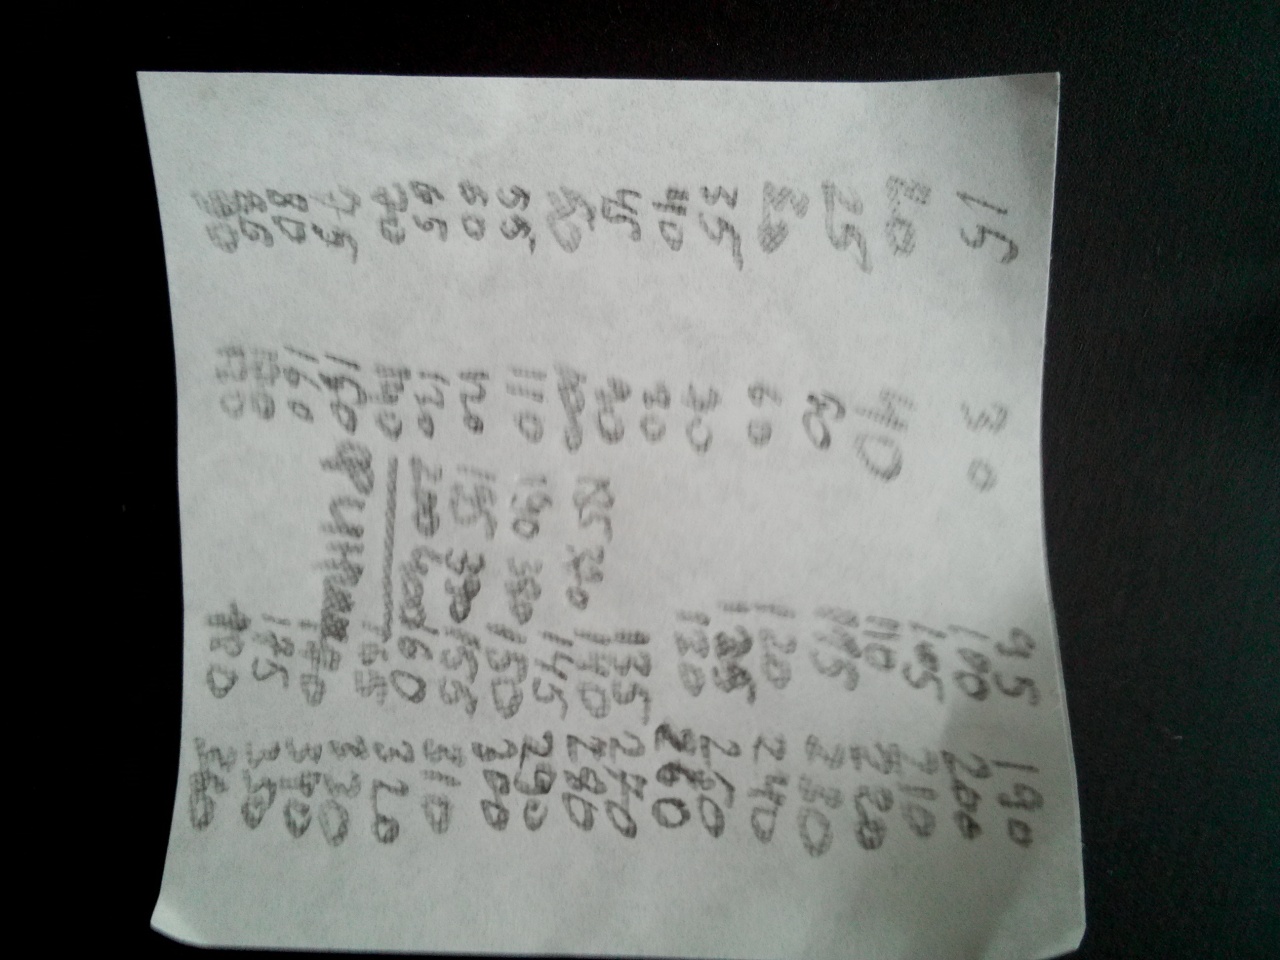 15 30
20 40
25 50
30 60
35 70
40 80
45 90
50 100
55 110
60 120
65 130
70 140
75 150
80 160
85 170
90 180
185 370
190 380
195 390
200 400
95 190
100 200
105 210
110 220
115 230
120 240
125 250
130 260
135 270
140 280
145 290
150 300
155 310
160 320
165 330
170 340
175 350
180 360